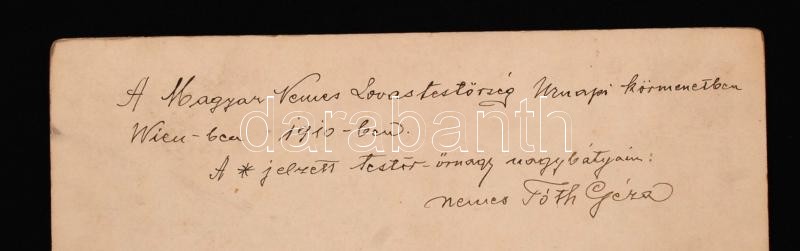 A Magyar Nemes Lovastestőrség Úrnapi körmenetben
Wien-ben 1910-ben.
A * jelzett testőr-őrnagy nagybátyám:
nemes Tóth Géza
darabanth